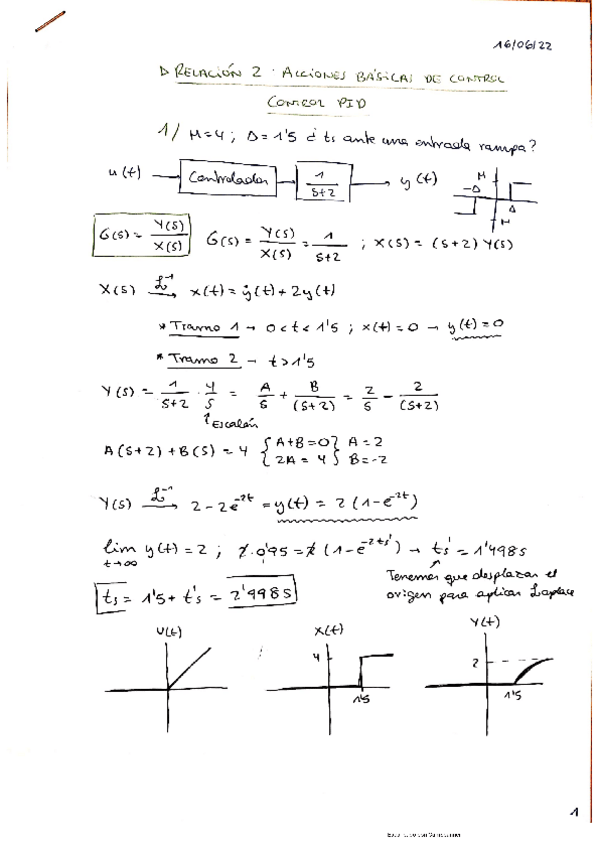 16/06/22
▷ RELACIÓN 2: ACCIONES BÁSICAS DE CONTROL
CONTROL PID
1/ M=4; Δ=1'5 ¿ ts ante una entrada rampa?
u(t) → Controlador → 1/(s+2) → y(t)
M
-Δ
Δ
-M
G(s) = Y(s)/X(s)   G(s) = Y(s)/X(s) = 1/(s+2) ; X(s) = (s+2) Y(s)
X(s) ℒ⁻¹→ x(t) = ẏ(t) + 2y(t)
* Tramo 1 → 0 < t < 1'5 ; x(t) = 0 → y(t) = 0
* Tramo 2 → t > 1'5
Y(s) = 1/(s+2) · 4/s = A/s + B/(s+2) = 2/s - 2/(s+2)
↑ Escalón
A(s+2) + B(s) = 4 { A+B=0 } A=2
{ 2A = 4 } B=-2
Y(s) ℒ⁻¹→ 2 - 2e^(-2t) = y(t) = 2 (1 - e^(-2t))
lim y(t) = 2 ; 2·0'95 = 2 (1 - e^(-2ts')) → ts' = 1'498s
t→∞
Tenemos que desplazar el
origen para aplicar Laplace
ts = 1'5 + t's = 2'998s
U(t)
X(t)
4
1'5
Y(t)
2
1'5
1